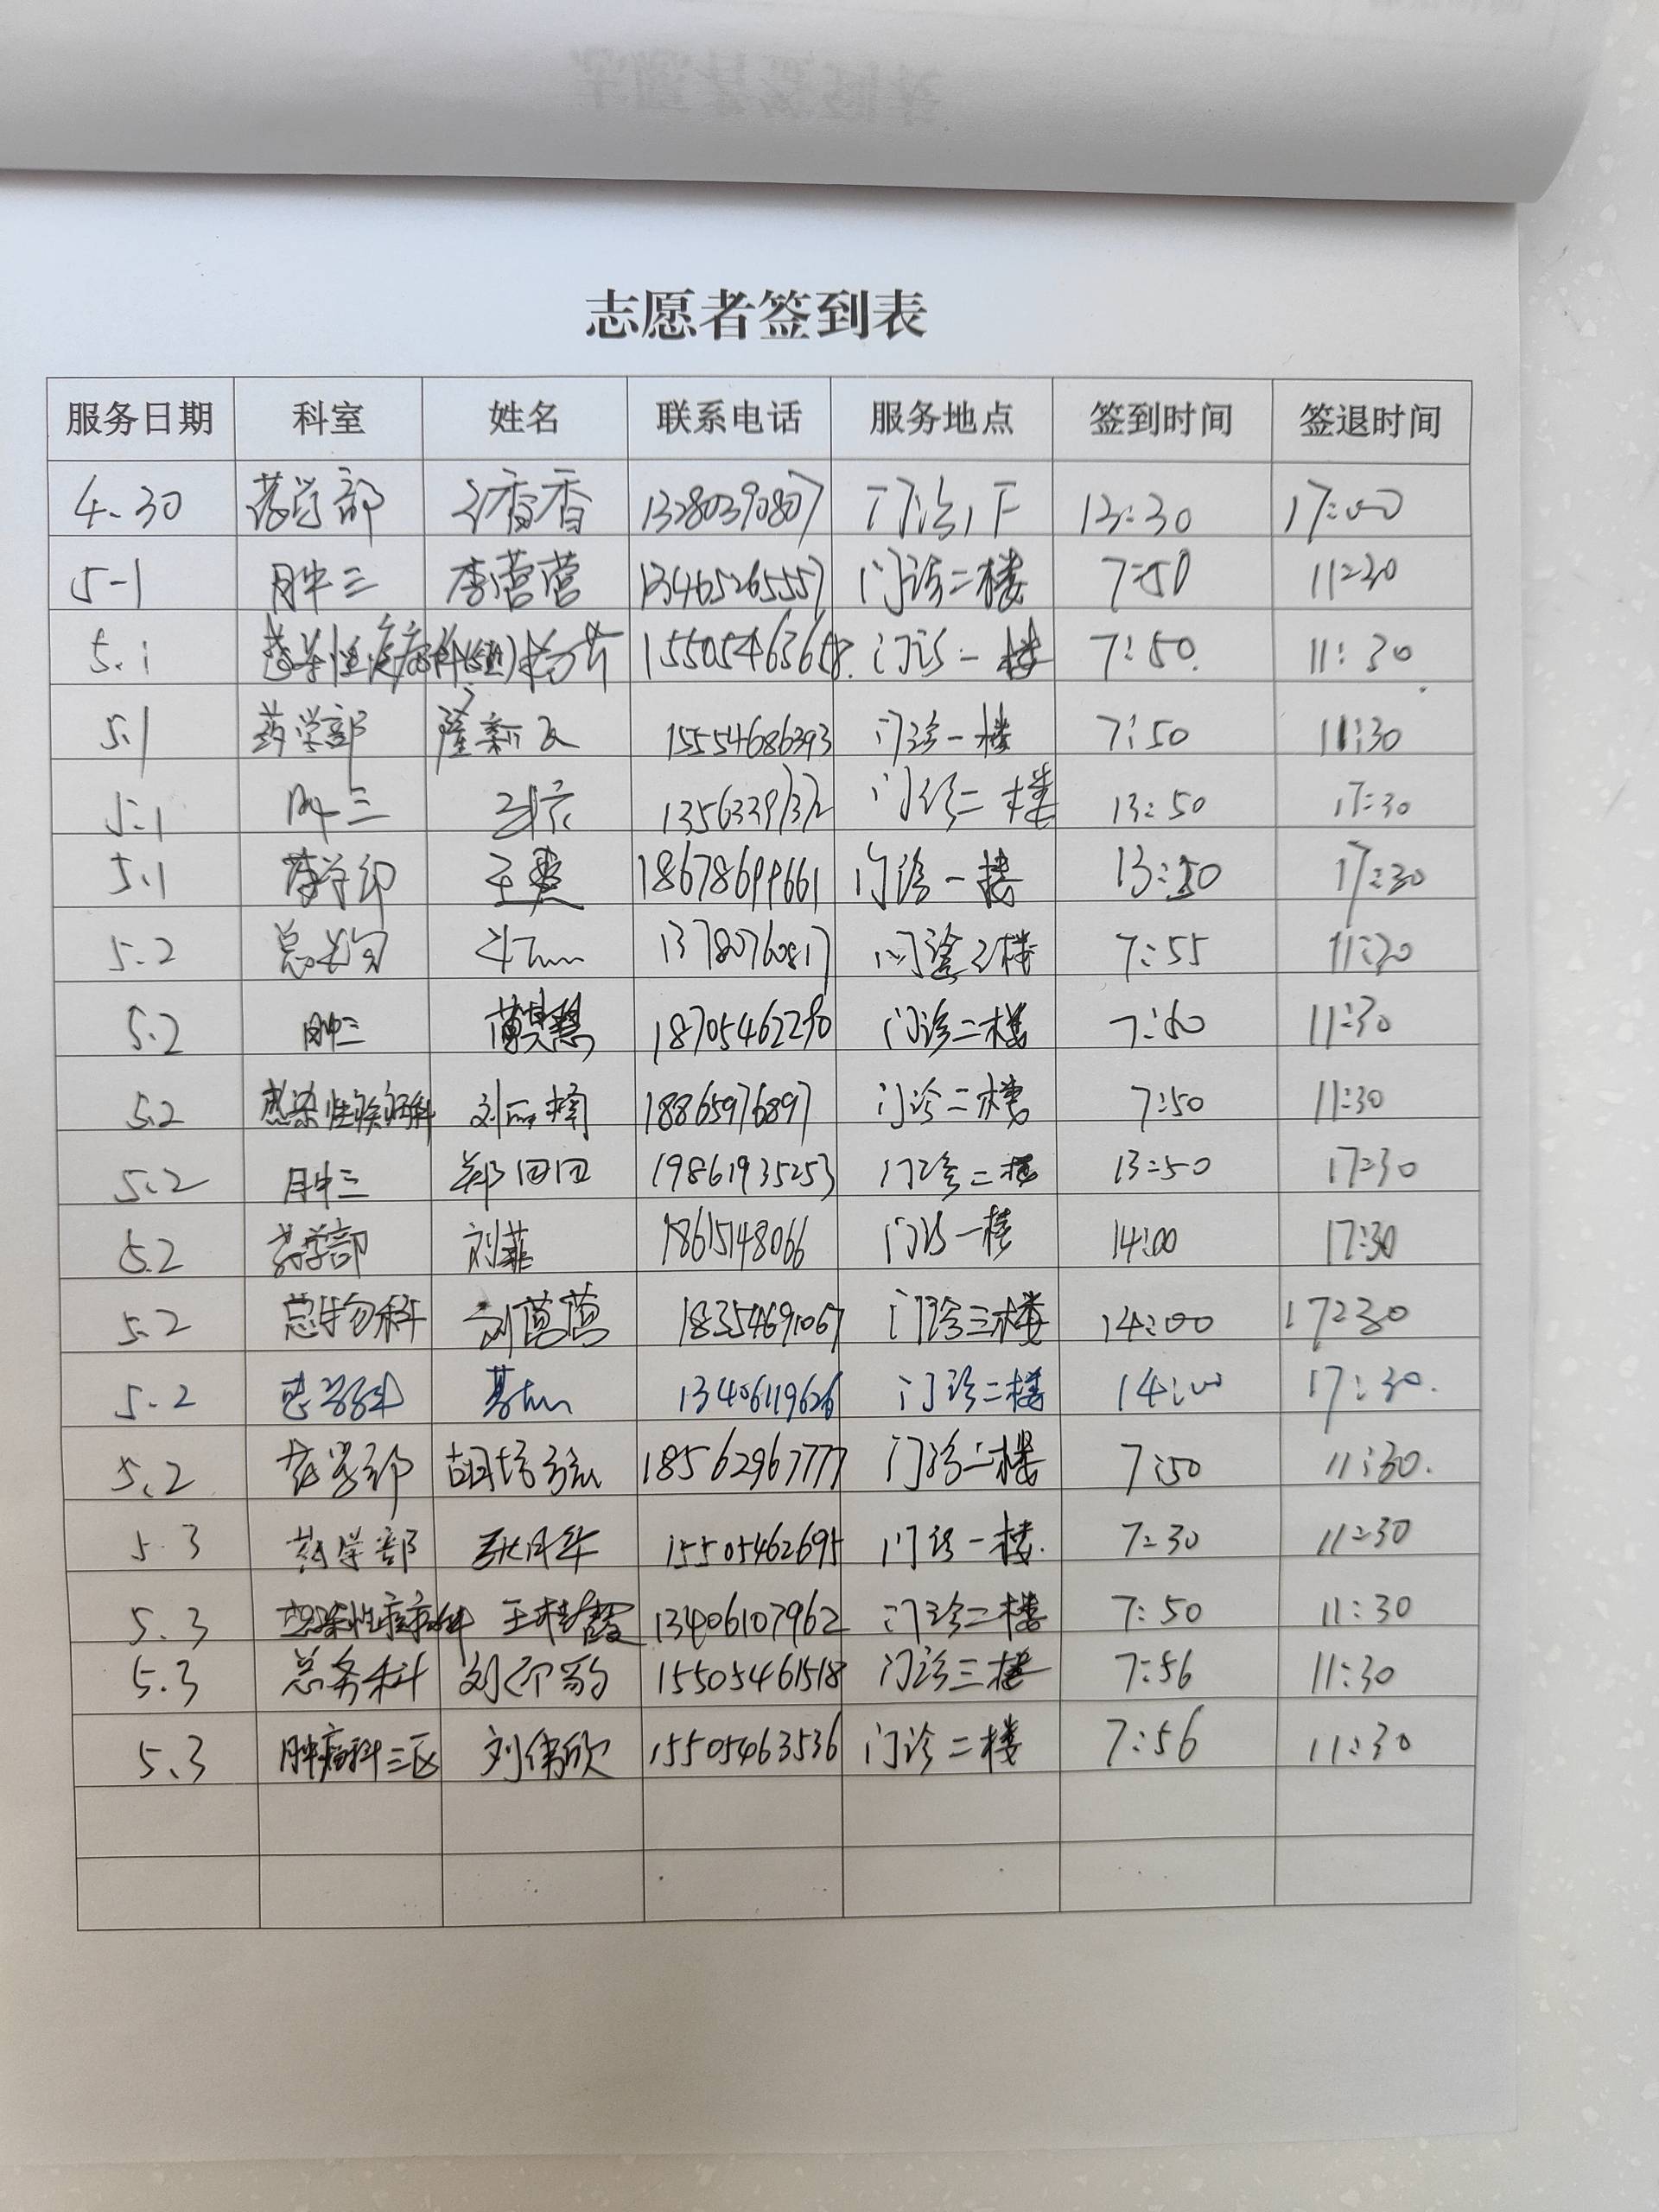 志愿者签到表
服务日期 科室 姓名 联系电话 服务地点 签到时间 签退时间
4.30 药学部 香香 13280390807 门诊1F 13:30 17:00
5-1 肿三 李营营 13465265557 门诊二楼 7:50 11:30
5.1 感染性疾病科 15505463658. 门诊一楼 7:50. 11:30
5.1 药学部 隆新文 15554686393 门诊一楼 7:50 11:30
5.1 肿三 门诊二楼 13:50 17:30
5.1 药学部 王燕 18678699661 门诊一楼 13:50 17:30
5.2 总务 13780760817 门诊三楼 7:55 11:30
5.2 肿三 18705462290 门诊二楼 7:50 11:30
5.2 感染性疾病科 刘丽楠 18865976897 门诊二楼 7:50 11:30
5.2 肿三 郑团团 19861935253 门诊二楼 13:50 17:30
5.2 药学部 刘菲 门诊一楼 14:00 17:30
5.2 总务科 门诊三楼 14:00 17:30
5.2 13406119626 门诊二楼 14:00 17:30.
5.2 药学部 胡培 18562967777 门诊二楼 7:50 11:30.
5.3 药学部 耿月华 15505462695 门诊一楼. 7:30 11:30
5.3 感染性疾病科 王桂霞 13406107962 门诊二楼 7:50 11:30
5.3 总务科 刘 15505461518 门诊三楼 7:56 11:30
5.3 肿瘤科三区 刘伟欣 15505463536 门诊二楼 7:56 11:30